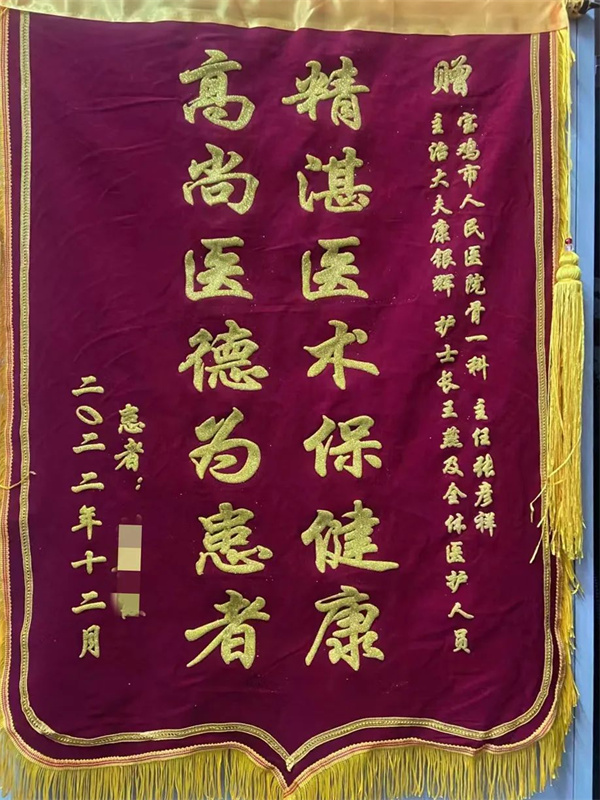 赠
宝鸡市人民医院骨一科 主任张彦祥
主治大夫康银辉 护士长王燕及全体医护人员
精湛医术保健康
高尚医德为患者
患者：
二〇二二年十二月